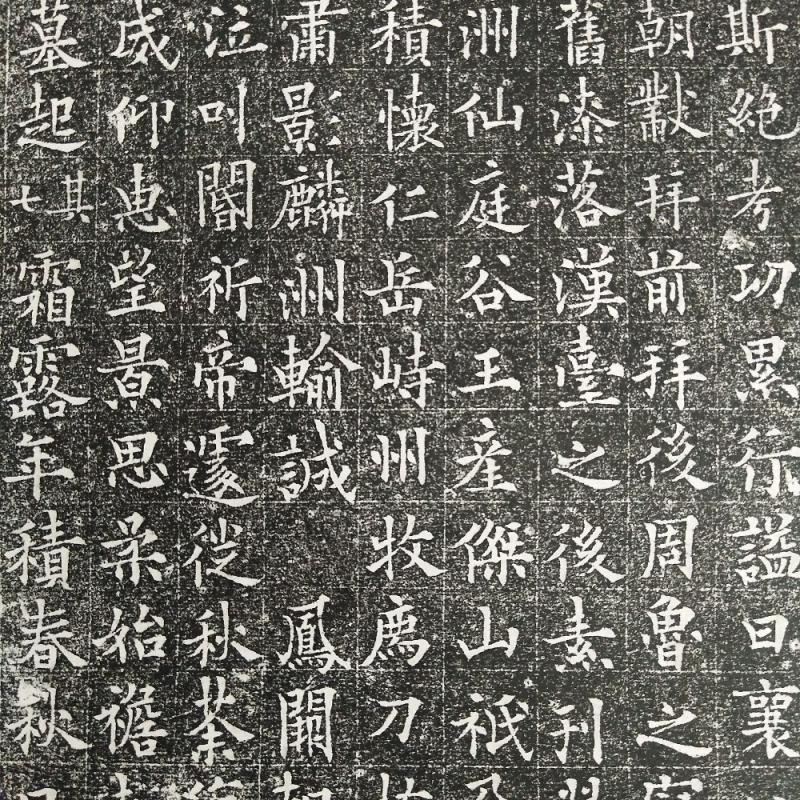 斯絶考功累行謚曰襄
朝黻拜前拜後周魯之
舊漆落漢臺之後素刊
洲仙庭谷王產傑山祇
積懷仁岳峙州牧廌刀
肅影麟洲輸誠 鳳闕
泣叫閽祈帝遽從秋荼
威仰惠望景思柔始襜
墓起其七霜露年積春秋